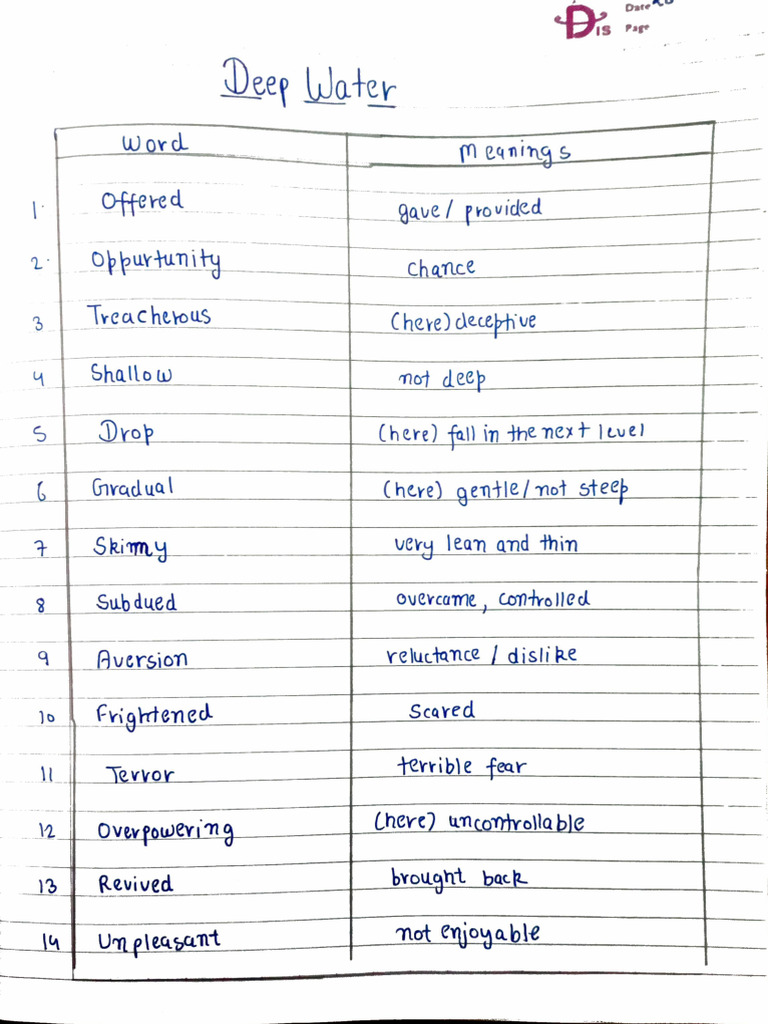 DIS Date
Page
Deep Water
Word Meanings
1. Offered gave/ provided
2. Oppurtunity chance
3 Treacherous (here) deceptive
4 Shallow not deep
5 Drop (here) fall in the next level
6 Gradual (here) gentle/not steep
7 Skinny very lean and thin
8 Subdued overcame, controlled
9 Aversion reluctance / dislike
10 Frightened Scared
11 Terror terrible fear
12 Overpowering (here) uncontrollable
13 Revived brought back
14 Unpleasant not enjoyable